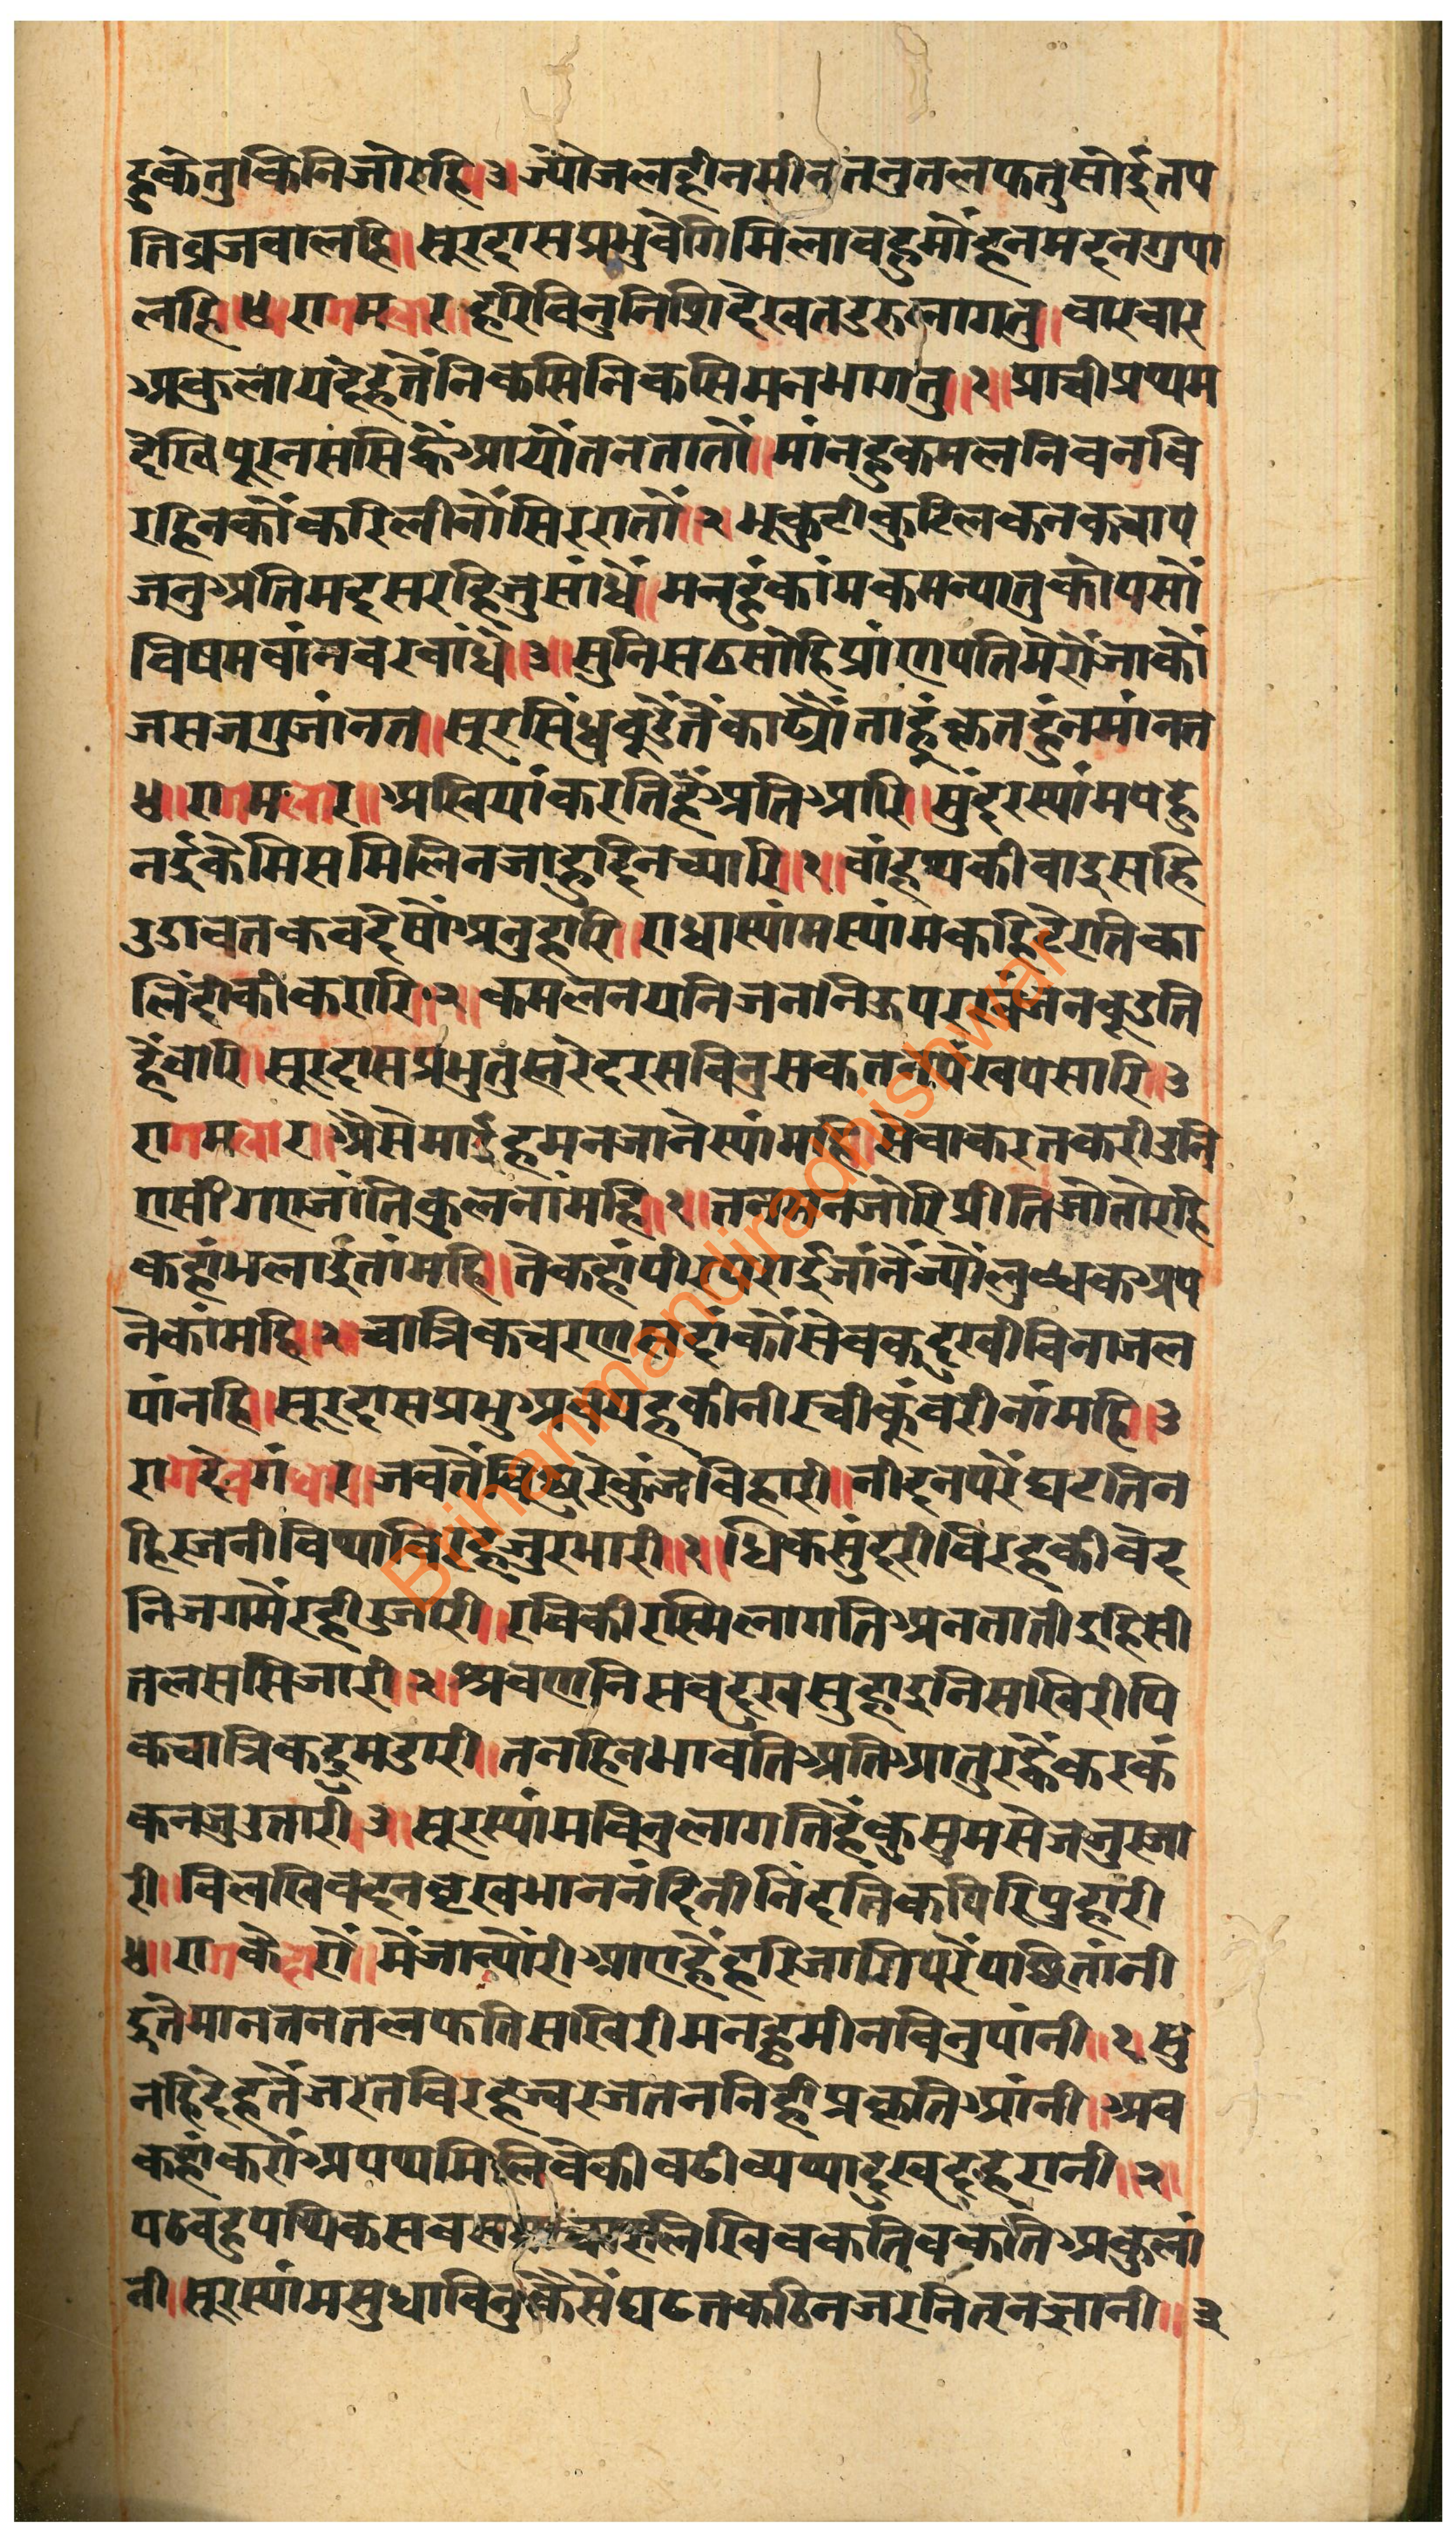 हुकेतुकिनिजोरोहि॥३ ज्यौजलहीनमीनतनुतलफतुसोईतप
तिव्रजवालहि॥सूरदासप्रभुवेगिमिलावहुमोंहनमदनगुपा
लहि॥४ रागमलार॥हरिविनुनिशिदेखतडरुलागतु॥वारवार
अकुलायदेहतैंनिकसिनिकसिमनभागतु॥१॥प्राचीप्रथम
देखिपूरनससिह्वैंआयौंतनतातौं॥मांनहुकमलनिवनवि
रहिनकौंकरिलीनौंसिररातौं॥२ भृकुटीकुटिलकनकचाप
जनुअतिमदसरहिजुसांधें॥मनहुंकांमकमन्यातुकोपसौं
विषमवांनवरवांधें॥३॥सुनिसठसोहिप्रांणपतिमेरौंजाकौं
जसजगुजांनत॥सूरसिंधुवूडेंतैंकाढ्यौंताहूंकृतहुंनमांनत
४॥रागमलार॥अखियांकरतिहैंअतिआरि॥सुंदरस्यांमपेहु
नईकेमिसमिलिनजाहुदिनच्यारि॥१॥वांहथकीवाइसहि
उडावतकवदेषौंअनुहारि॥राधास्यांमस्यांमकहिटेरतिका
लिंदीकीकरारि॥२॥कमलनयनिजननिऊपरखंजनवूडति
हैंवारि॥सूरदासप्रभुतुह्मरेदरसविनुसकतनपंखपसारि॥३
रागमलार॥अैसेमाईहमनजानेस्यांमहि॥सेवाकरतकरीउनि
एसीगएजांतिकुलनांमहि॥१॥तनमनजोरिप्रीतिजोतोरहि
कहांभलाईतांमहि॥तेकहांपीरपराईजांनैंज्यौंलुब्धकअप
नेकांमहि॥२चात्रिकचरणसदांकौंसेवकदुखीविनाजल
पांनहि॥सूरदासप्रभुअवयहकीनीरचीकुंवरीनांमहि॥३
रागदेवगंधार॥जवतैंविछुरेकुंजविहारी॥नीदनपरेंघटतिन
हिरजनीविथाविरहजुरभारी॥१॥धिकसुंदरीविरहकीवेद
निजगमेंरहीउजारी॥रविकीरस्मिलागतिअनतातीइहिसी
तलससिजारी॥२॥श्रवणनिसवदुखसुहाइनिसखिरीपि
कचात्रिकद्रुमडारी॥तनहिनभावतिअतिआतुरह्वैंकरकं
कनजुउतारी॥३॥सूरस्यांमविनुलागतिहैंकुसुमसेजजुरजा
री॥विलखिवदनवृखभाननंदिनीनिंदतिंकपिरिपुहारी
४॥रागकेदारौं॥मेंजान्यौंरीआएहैंहरिजागिपरेंपछितांनी
इतेमानतनतलफतिसखिरीमनहुमीनविनुपांनी॥१॥सु
नहिदेहतेंजरतविरहज्वरजतननिहीप्रकृतिआंनी॥अव
कहांकरौंअपथ्यमिलिवेकीवढीव्यथादुखदुहरानी॥२॥
पठवहुपथिकसवसमाचारलिखिवकतिवकतिअकुलां
नी॥सूरस्यांमसुधाविनुकैसैंघटतकठिनजरनितनज्ञानी॥३